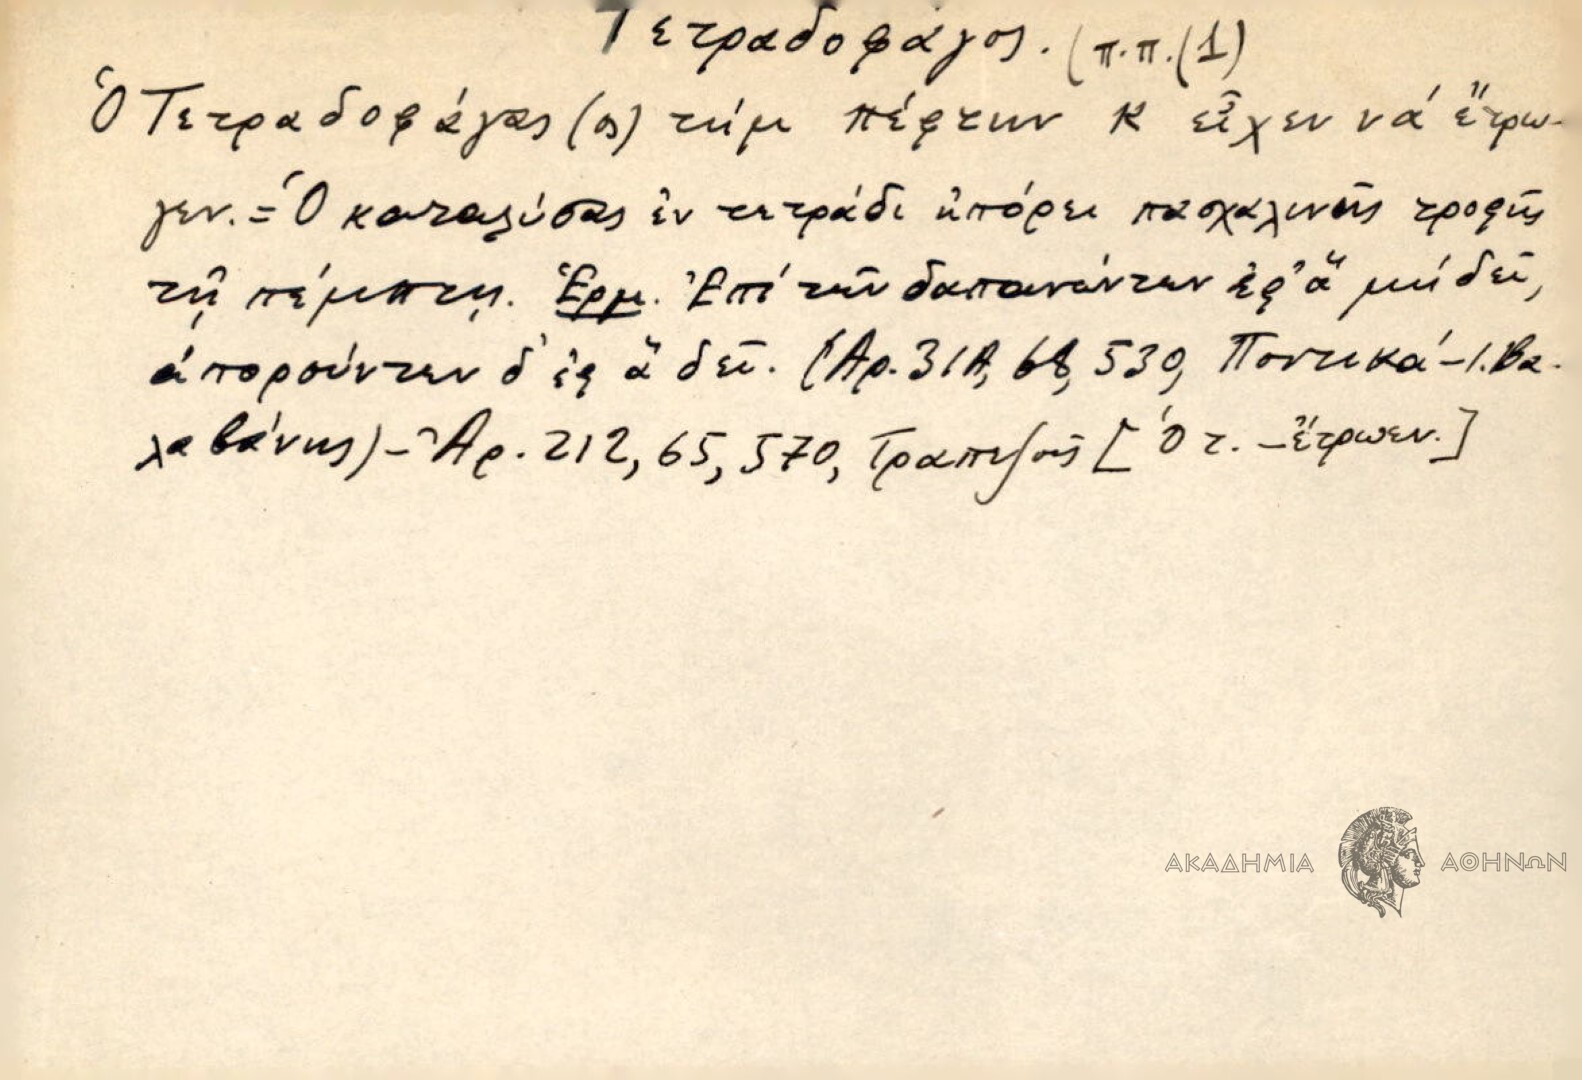 Τετραδοφάγος. (π.π.(1)
Ὁ Τετραδοφάγας (ος) τήμ πέφτην κ εἶχεν νά ἔτρω-
γεν. = Ὁ καταλύσας ἐν τετράδι ἠπόρει πασχαλινῆς τροφῆς
τῇ πέμπτῃ. Ἑρμ. Ἐπί τῶν δαπανώντων ἐφ' ἅ μή δεῖ,
ἀπορούντων δ' ἐφ ἅ δεῖ. (Ἀρ. 31Α, 68, 530, Ποντικά - Ι. Βα-
λαβάνης) - Ἀρ. 212, 65, 570, Τραπεζοῦς [Ὁ τ. - ἔτρωεν.]
ΑΚΑΔΗΜΙΑ ΑΘΗΝΩΝ